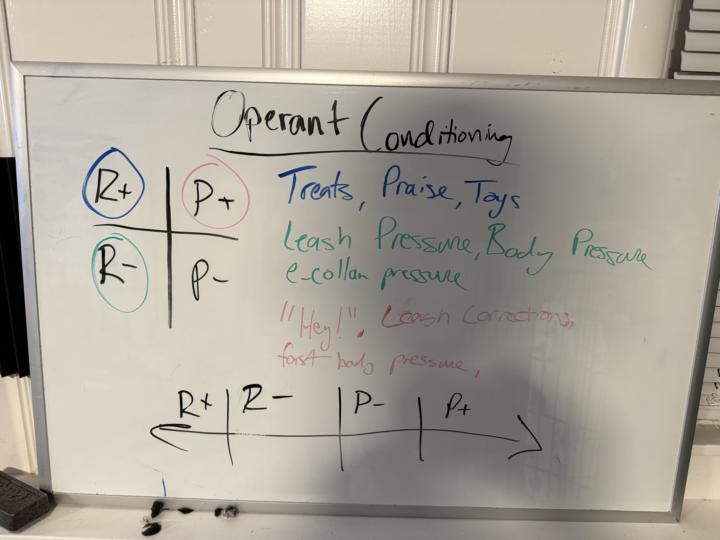 Operant Conditioning
R+ P+
R- P-
Treats, Praise, Toys
Leash Pressure, Body Pressure
e-collar pressure
"Hey!", Leash Corrections,
fast body pressure,
R+ R- P- P+